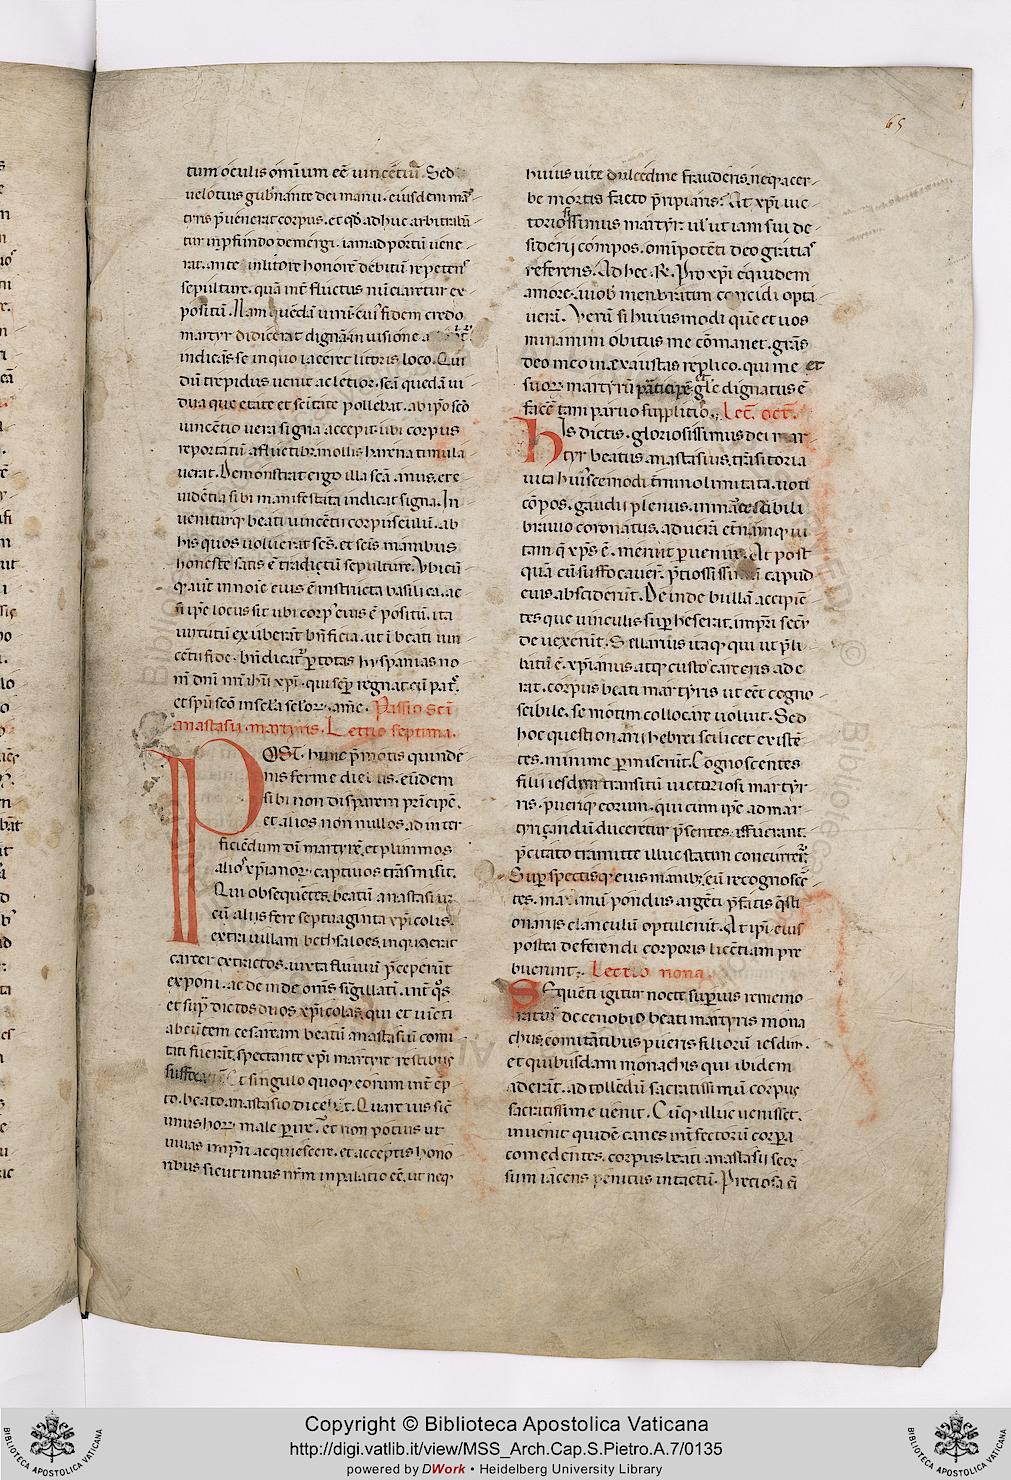 65
tum oculis omiũm eẽ uincẽtiũ. Sed
uelotius gub̃nante dei manu. eiusdem mã
tyris p̃uenerat corpus. et qđ adhuc arbitrabã
tur in p̃fundo demergi. iam ad portũ uene
rat. ante in litore honorẽ debitũ repetens
sepulture. quã int̃ fluctus nũciaretur ex
positũ. Nam quedã uiru. cui fidem credo
martyr didicerat dignã. in uisione a
indicãs se in quo iaceret litoris loco. Qui
dũ trepidus uenit ac letior. scã quedã ui
dua que etate et scĩtate pollebat. ab ip̃o scõ
uincẽtio uera signa accepit. ubi corpus
reportatũ a fluctib; mollis harena tumula
uerat. Demõnstrat ergo illa scã anus. et e
uidẽtia sibi manifestata indicat signa. In
ueniturq; beati uincẽtii corpusculũ. ab
his quos uoluerat scs̃. et scĩs manibus
honeste satis ẽ traditũ sepulture. Vbicũ
q; aũt in noĩe eius ẽ instructa basilica. ac
si ip̃e locus sit ubi corp' eius ẽ positũ. ita
uirtutũ exuberãt bñficia. ut ĩ beati uin
cẽtii fide. bñdicat' p̱ totas hyspanias no
m̃ dñi nr̃i ihũ xp̃i. qui sep̱ regnat cũ pat̃.
et sp̃u scõ in sc̃la sc̃lor. am̃e. Passio scĩ
anastasii martyris. Lectio septima.
POST hunc p̃mõtis quinde
nis ferme dieb us. eũdem
sibi non disparem prĩcipẽ.
et alios non nullos. ad inter
ficiẽdum dũ martyrẽ. et plurimos
alio' xp̃ianor. captiuos trãsmisit.
Qui obsequẽtes. beatũ anastasiũ
cũ aliis fere septuaginta xp̃icolis.
extri uillam bethsaloes. in qua erit
carcer extrictos. iuxta fluuiũ p̃ceperũt
exponi. ac deinde om̃s sigillati. int̃ q̃s
et sup̃ dictos duos xp̃icolas. qui et uicti
ab eũtem cesaream beatũ anastasiũ comi
tati fuerãt. spectante xp̃i martyre restibus
Et singulo quoq; eorum int̃ ep̃
to. beato. anastasio dicebãt. Quare uis sic
unus horr. male p̱ire? et non potius ut
uiuas imp̃ri acquiescere. et acceptis hono
ribus sicut unus nr̃m in palatio eẽ. ut neq;
huius uite dulcedine frauderis. neq; acer
be mortis facto p̃ripiaris? At xp̃i uic
toriosissimus martyr. ul' ut iam sui de
siderij compos. omĩpotẽti deo gratias
referens. Ad hec. R̃. Pro xp̃i equidem
amore. a uob' menbratim concidi opta
uerã. Verũ si huiusmodi quẽ et uos
minamini obitus me cõmanet. grãs
deo meo inexaustas replico. qui me et
suor. martyrũ participẽ gl̃e dignatus ẽ
facẽ tam paruo supplitio. Lec̃t. oct̃.
His dictis. gloriosissimus dei mar
tyr beatus anastasius. trãsitoria
uita huiuscemodi t̃mino limitata. uoti
cõpos. gaudii plenus. inmarcescibili
brauio coronatus. ad uerã etñamq; ui
tam q̃ xp̃s ẽ. meruit p̱uenire. At post
quã eũ suffocauer̃. p̃tiosissimũ capud
eius absciderũt. Deinde bullã accipiẽ
tes que uinculis sup̱ heserat. imp̃ri secũ
deuexerũt. Sellarius itaq; qui ut p̃li
batũ ẽ. xp̃ianus. atq; custo' carceris ad e
rat. corpus beati martyris ut eẽt cogno
scibile. semotim collocare uoluit. Sed
hoc questionarii hebrei scilicet existẽ
tes. minime p̱miserũt. Cognoscentes
filii iesdim transitũ uictoriosi martyr
ris. pueriq; eorum. qui cum ip̃e ad mar
tyrizandũ duceretur p̃sentes affuerant.
p̃citato tramitte illuc statim concurrer̃.
Sup̱ spectisq; eius manib; eũ recognoscẽ
tes. maximũ pondus argẽti p̃fatis q̃sti
onariis clanculũ optulerũt. At ip̃i eius
postea deferendi corporis licẽtiam pre
buerunt. Lectio nona.
SEquẽti igitur nocte sup̱ius rememo
ratur' de cenobio beati martyris mona
chus. comitãtibus pueris filiorũ iesdim.
et quibusdam monachis qui ibidem
aderãt. ad tollẽdũ sacratissimũ corpus
sacratissime uenit. Cũq; illuc uenisset.
inuenit quidẽ canes int̃fectorũ corpora
comedentes. corpus beati anastasii seor
sum iacens penitus intactũ. Pretiosa ẽi
Copyright © Biblioteca Apostolica Vaticana
http://digi.vatlib.it/view/MSS_Arch.Cap.S.Pietro.A.7/0135
powered by DWork • Heidelberg University Library
BIBLIOTECA APOSTOLICA VATICANA
BIBLIOTECA APOSTOLICA VATICANA